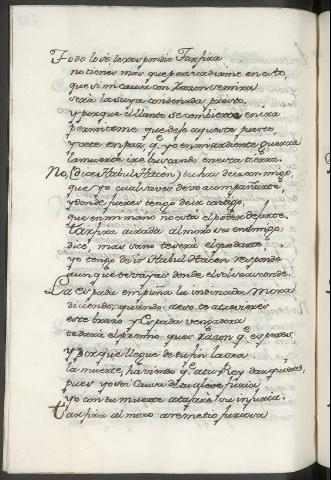 Todo lo sè, le respondio Tarfira
no tienes mas que persuadirme en esto,
que si mi causa con razon se mira
serà la suya condenada presto.
y porque el llanto se combierte en ira
permiteme que deje aqueste puerto,
y vete en paz, q̃. yo en mi ardiente guerra
la muerte ire buscando en esta tierra.
No, (dice Habul Hacen) tu has de ir conmigo,
que yo qual saves devo acompañarte,
y donde fueres tengo de ir contigo,
que en mi mano no està el poder dejarte.
Tarfira airada al moro su enemigo
dice, mas sano te serà el quedarte.
yo tengo de ir Habul Hacen responde
aunque te vayas donde el sol se asconde.
La espada empuña la indinada Mora
diciendo, quando a eso te atrevieres
este brazo y espada vengadora
te darà el premio, que es razon q̃. esperes.
y porque llegue de tu fin la ora
la muerte, haviendo q̃. a tu Rey dar quieres,
pues yo soi causa del su aleve furia
yo con tu muerte atajarè su injuria.
Tarfira al moro arremetio furiosa